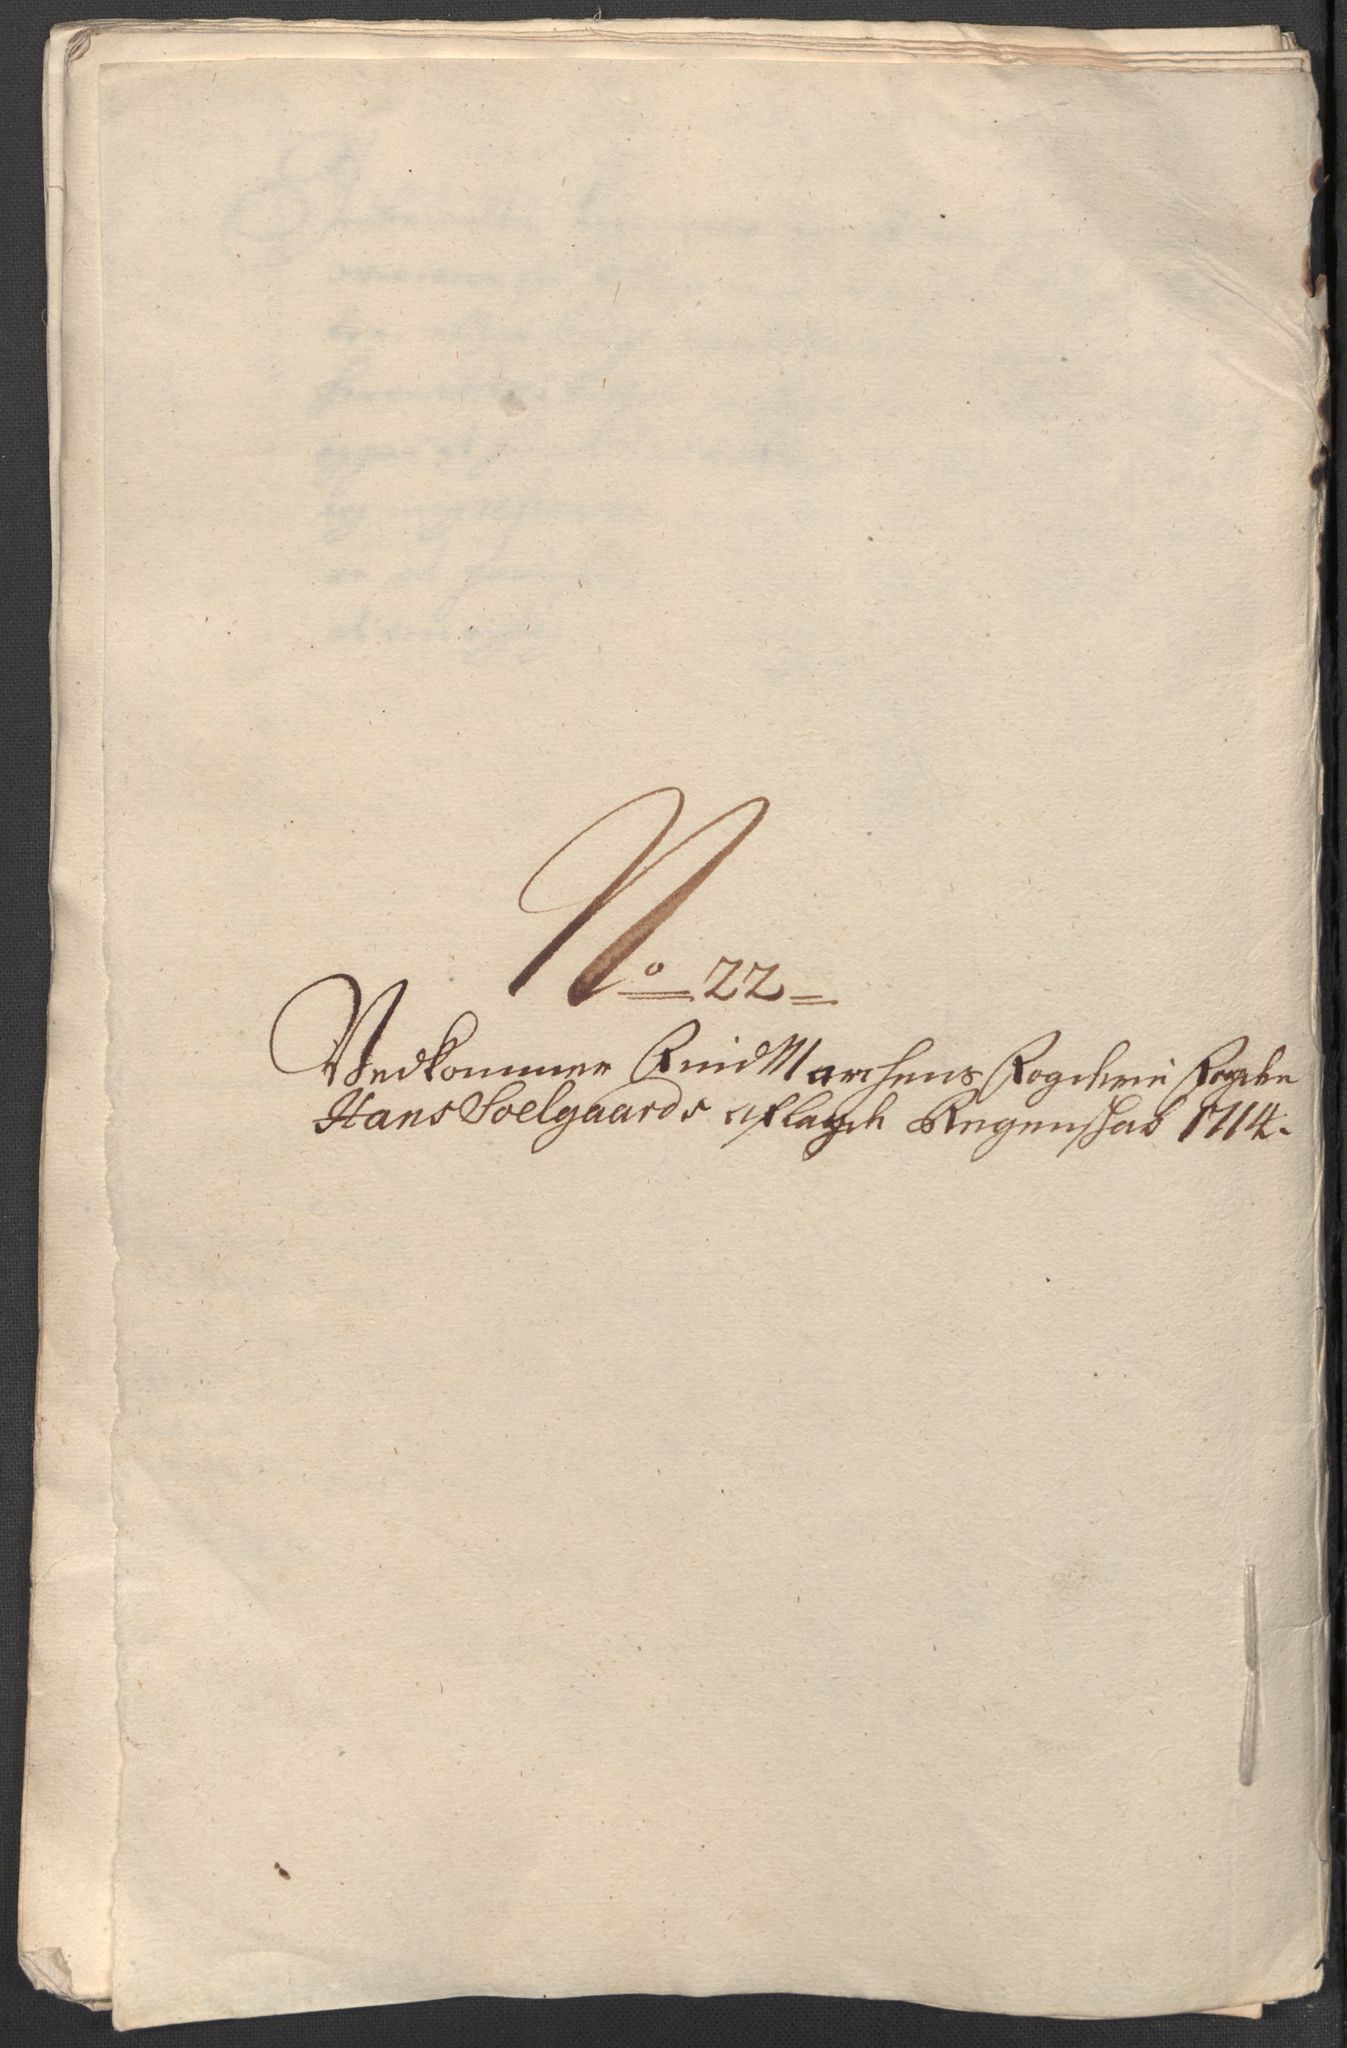 No 22
Vedkommer Smid Marchens Fogderie Fogden
Hans Soelgaards aflagde Regenschab 1714.